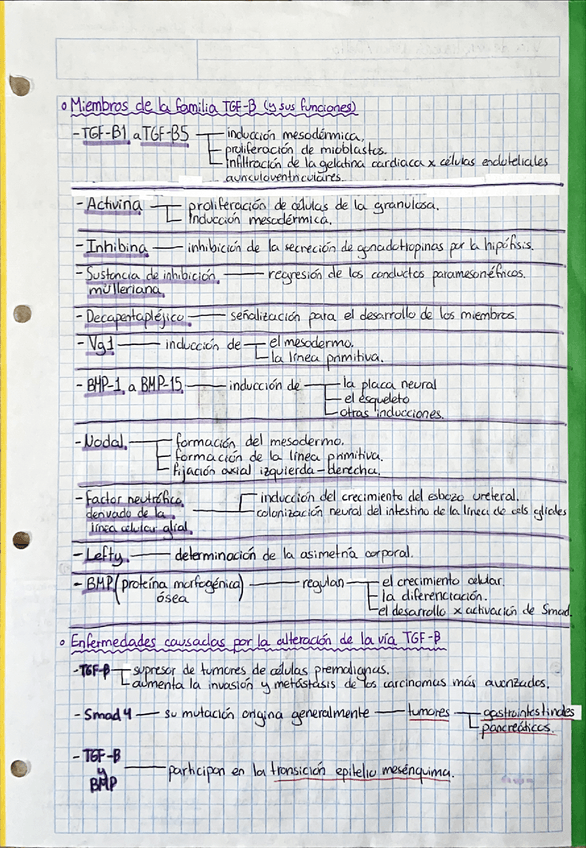 Miembros de la familia TGF-β (y sus funciones)
- TGF-B1 a TGF-B5 inducción mesodérmica.
proliferación de mioblastos.
Infiltración de la gelatina cardiaca x células endoteliales
auriculoventriculares.
- Activina proliferación de células de la granulosa.
Inducción mesodérmica.
- Inhibina inhibición de la secreción de gonadotropinas por la hipófisis.
- Sustancia de inhibición regresión de los conductos paramesonéfricos.
mülleriana
- Decapentapléjico señalización para el desarrollo de los miembros.
- Vg1 inducción de el mesodermo.
la línea primitiva.
- BMP-1 a BMP-15 inducción de la placa neural
el esqueleto
otras inducciones.
- Nodal formación del mesodermo.
formación de la línea primitiva.
fijación axial izquierda-derecha.
- Factor neutrófico inducción del crecimiento del esbozo ureteral.
derivado de la colonización neural del intestino de la línea de cels gliales
línea celular glial
- Lefty determinación de la asimetría corporal.
- BMP (proteína morfogénica regulan el crecimiento celular.
ósea) la diferenciación.
el desarrollo x activación de Smad.
Enfermedades causadas por la alteración de la vía TGF-β
- TGF-β supresor de tumores de células premalignas.
aumenta la invasión y metástasis de los carcinomas más avanzados.
- Smad 4 su mutación origina generalmente tumores gastrointestinales
pancreáticos.
- TGF-β
y participan en la transición epitelio mesénquima.
BMP